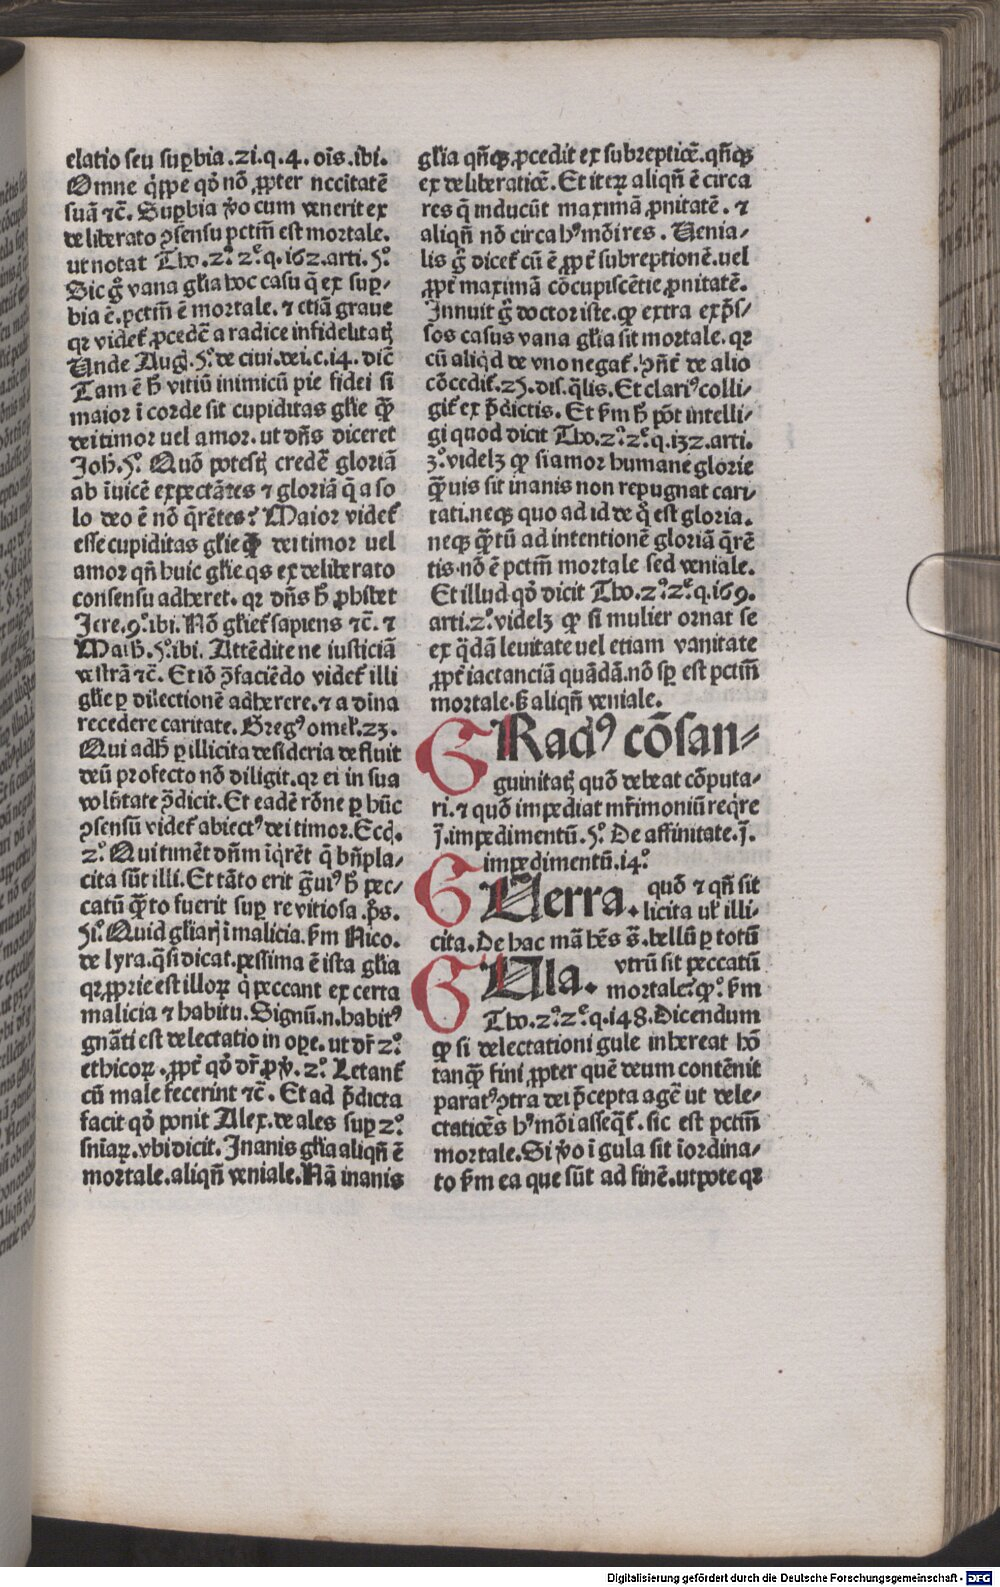 elatio seu suꝑbia .21.q.4. oīs.ibi.
Omne q̇ppe qḋ nō ꝓpter nccitatē
suā ⁊c̄. Suꝑbia v̊o cum venerit ex
deliberato ꝯsensu pctm̄ est mortale.
ut notat Tho.2.ᵃ 2.ᵉ q.162.arti.5.º
Sic g̊ vana gl̄ia hoc casu q̄ ex suꝑ-
bia ē.pctm̄ ē mortale.⁊ etiā graue
qꝛ videt᷑ ꝓcedē a radice infidelitatꝭ
Unde Aug.5.º de ciui.dei.c.14. dic̄
Tam ē h̄ vitiū inimicū pie fidei si
maior ī corde sit cupiditas gl̄ie qᷓꝫ
dei timor uel amor. ut dn̄s diceret
Joh̄.5.º Quō potestꝭ credē̄ gloriā
ab īuicē expectātes ⁊ gloriā q̄ a so
lo deo ē nō q̄rētes? Maior videt᷑
esse cupiditas gl̄ie qᷓꝫ dei timor uel
amor qn̄ huic gl̄ie qs ex deliberato
consensu adheret. qꝛ dn̄s h̄ ꝓhibet
Jere.9.º ibi. Nō gl̄iet᷑ sapiens ⁊c̄. ⁊
Math̄.5.º ibi. Attēdite ne iusticiā
vestrā ⁊c̄. Et iō p̄faciēdo videt᷑ illi
gl̄ie ꝑ dilectionē adherere.⁊ a diuina
recedere caritate. Greg.ꝰ omel̄.23.
Qui adh̄ ꝑ illicita desideria defluit
deū profecto nō diligit.qꝛ ei in sua
volūtate p̄dicit. Et eadē rōne ꝑ hūc
ꝯsensū videt᷑ abiectꝰ dei timor. Ecc̄.
2.º Qui timēt dn̄m īq̄rēt q̄ bn̄pla-
cita sūt illi. Et tāto erit g̊uiꝰ h̄ pec-
catū qᷓꝫto fuerit suꝑ re vitiosa. p̄s.
51.º Quid gl̄iarꝭ ī malicia. ẜm Nico.
de lyra.q̄si dicat. pessima ē ista gl̄ia
qꝛ ꝓprie est illoꝝ q̇ peccant ex certa
malicia ⁊ habitu. Signū.n.habitꝰ
gn̄ati est delectatio in oꝑe. ut dr̄ 2.º
ethicoꝝ . ꝓpt᷑ qḋ dr̄ ꝓv̄. 2.º Letant᷑
cū male fecerint ⁊c̄. Et ad p̄dicta
facit qḋ ponit Alex.de ales suꝑ 2.º
sn̄iaꝝ.vbi dicit. Inanis gl̄ia aliqn̄ ē
mortale.aliqn̄ veniale.Nā inanis
gl̄ia qn̄qꝫ ꝓcedit ex subreptiōe.qn̄qꝫ
ex deliberatiōe. Et iteꝝ aliqn̄ ē circa
res q̄ inducūt maximā ꝓnitatē. ⁊
aliqn̄ nō circa hꝰmōi res. Uenia-
lis g̊ dicet᷑ cū ē ꝓpt᷑ subreptionē.uel
ꝓpt᷑ maximā cōcupiscētie ꝓnitatē.
Innuit g̊ doctor iste.ꝙ extra exp̄s-
sos casus vana gl̄ia sit mortale. qꝛ
cū aliqḋ de vno negat᷑.ꝯn̄t᷑ de alio
cōcedit᷑.25.dis.q̄lis. Et clariꝰ colli-
git᷑ ex p̄dictis. Et ẜm h̄ pōt intelli-
gi quod dicit Tho.2.ᵃ 2.ᵉ q.132.arti.
3.º videlꝫ ꝙ si amor humane glorie
qᷓꝫuis sit inanis non repugnat cari-
tati.neqꝫ quo ad id de q̊ est gloria.
neqꝫ qᷓꝫtū ad intentionē gloriā q̄rē
tis.nō ē pctm̄ mortale sed veniale.
Et illud qḋ dicit Tho.2.ᵃ 2.ᵉ q.169.
arti.2.º videlꝫ ꝙ si mulier ornat se
ex q̇dā leuitate uel etiam vanitate
ꝓpt᷑ iactanciā quādā.nō sꝑ est pctm̄
mortale.ẜ aliqn̄ veniale.
GRadꝰ cōsan-
guinitatꝭ quō debeat cōputa-
ri.⁊ quō impediat mr̄imoniū req̇re
j̄.impedimentū.5.º De affinitate.j̄.
impedimentū.14.º
GUerra. quō ⁊ qn̄ sit
licita ul̄ illi-
cita. De hac mā hēs s̄.bellū ꝑ totū
GUla. vtrū sit peccatū
mortale?ꝙº. ẜm
Tho.2.ᵃ 2.ᵉ q.148. Dicendum
ꝙ si delectationi gule inhereat hō
tanqᷓꝫ fini ꝓpter quē deum contēnit
paratꝰ ꝯtra dei p̄cepta agē̄ ut dele-
ctatiōes hꝰmōi asseq̄t᷑. sic est pctm̄
mortale. Si v̊o ī gula sit īordina-
to ẜm ea que sūt ad finē.utpote qꝛ
Digitalisierung gefördert durch die Deutsche Forschungsgemeinschaft - DFG